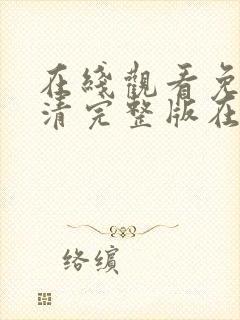 在綫觀看免
清完整版在
络缤